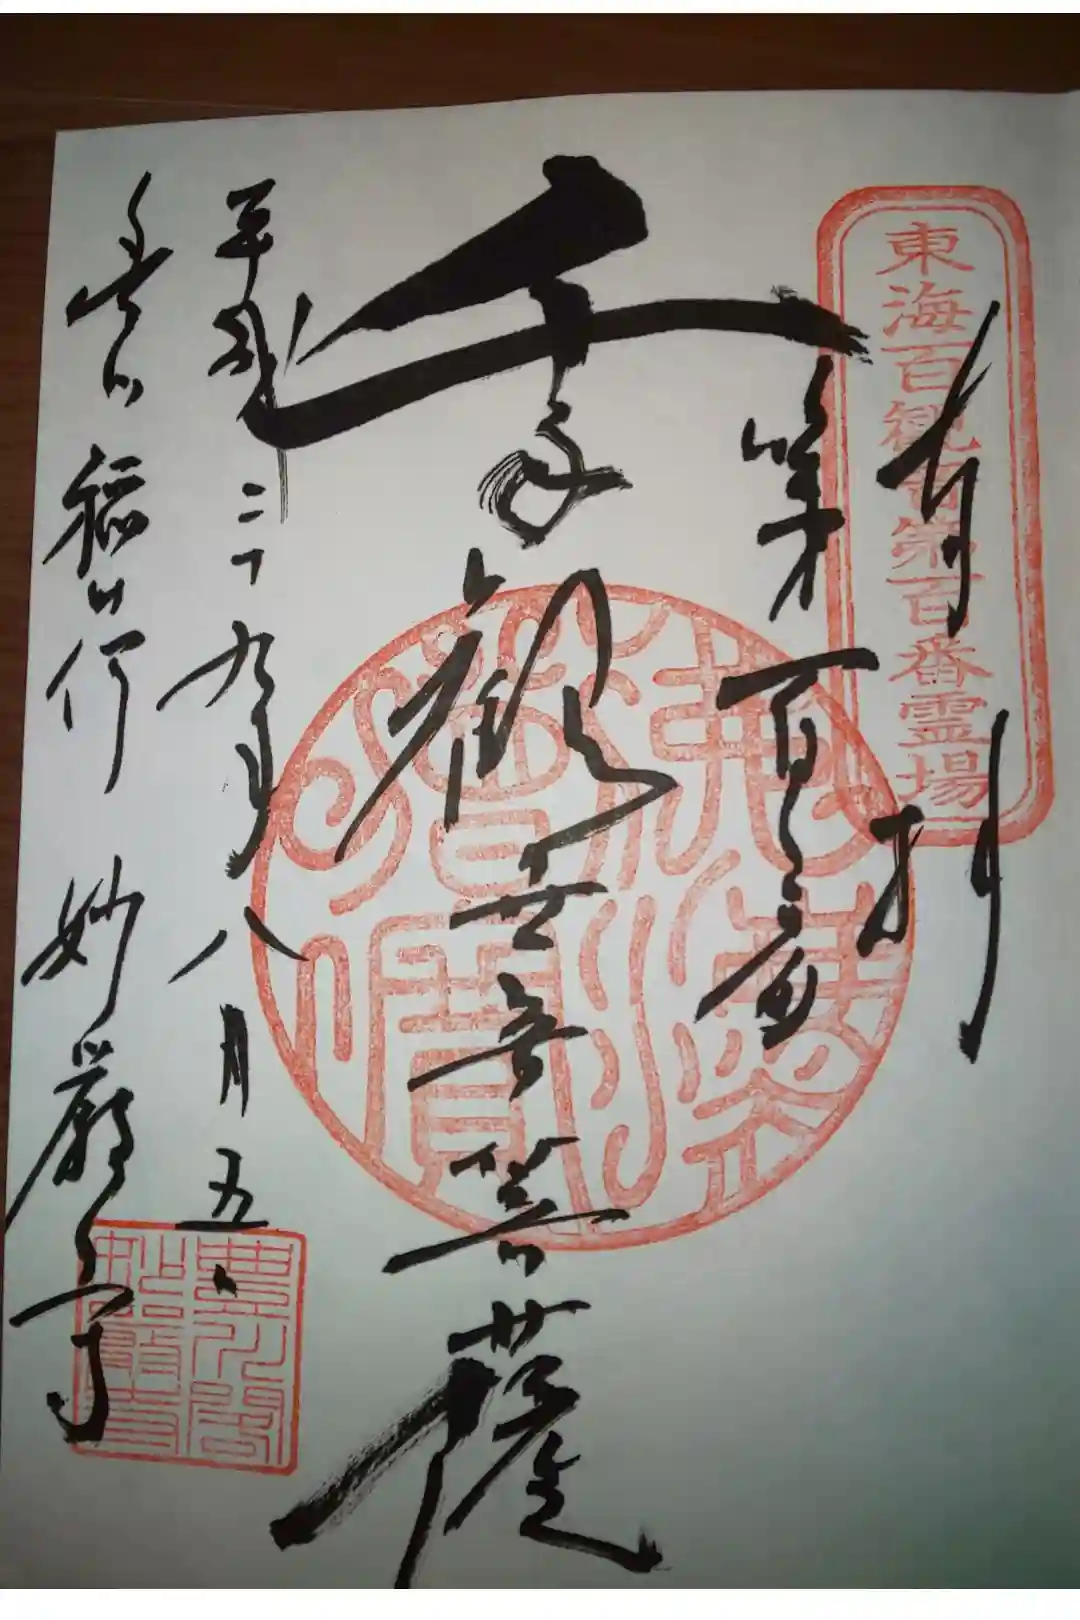 東海百観音第百番霊場
奉拝
第百番
千手観世音菩薩
平成二十九年八月五日
豊川稲荷 妙厳寺